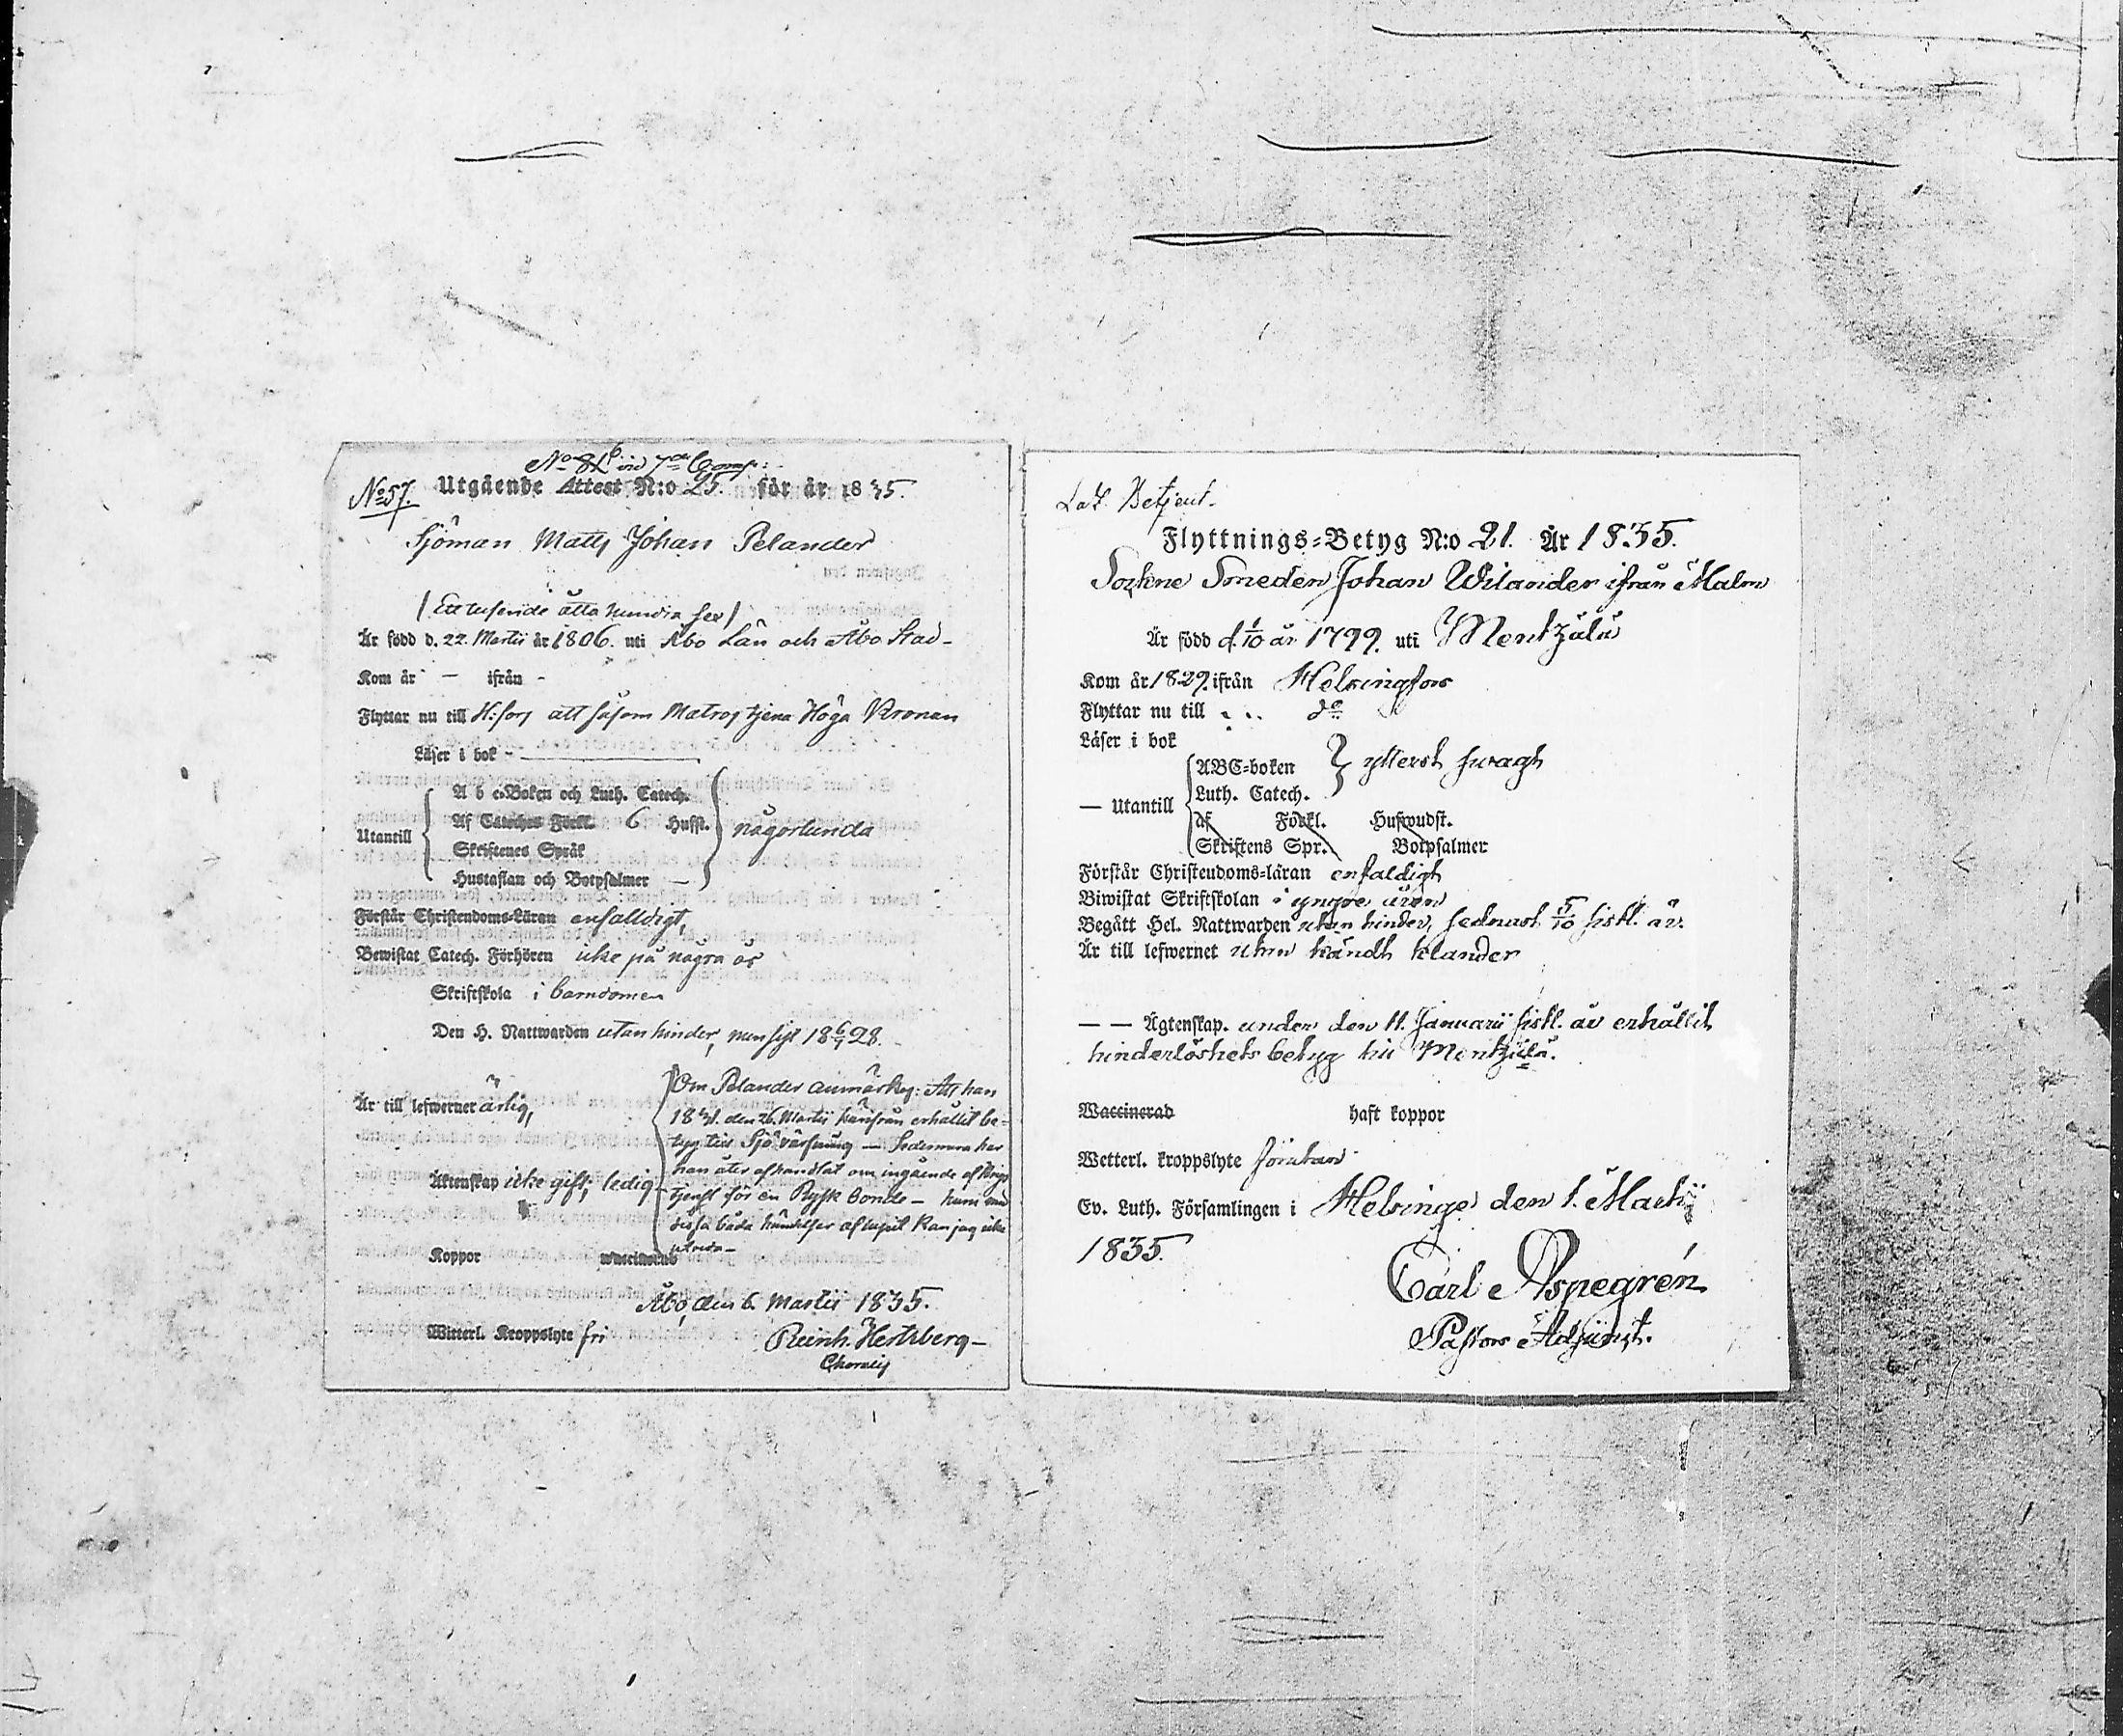 No 57.
Utgående Attest N:o 25. för år 1835.
Sjöman Matts Johan Pelander
/ Ett tusende åtta hundra sex /
Är född d. 22 Martii år 1806. uti Åbo Län och Åbo Stad -
Kom år - ifrån -
Flyttar nu till H:fors att såsom Matros tjena Höga Kronan
Läser i bok -
Utantill
A b c-Boken och Luth. Catech.
Af Cateches Förkl. 6 Hufst.
Skriftenes Språk
Hustaflan och Botpsalmer -
någorlunda
Förstår Christendoms-Läran enfalldigt,
Bewistat Catech. Förhören icke på några år
Skriftskola i barndomen
Den H. Nattwarden utan hinder, men sist 18 28.
Är till lefwernet ärlig,
Äktenskap icke gift; ledig
Om Pelander anmärkes: Att han
den 26 Martii härifrån erhållit be-
tyg till Sjö - Sedermera har
han åter afhandlat om ingående af Krigs
tjenst för en Rysk bonde - huru med
dessa båda händelser aflupit kan jag icke
utreda -
Koppor waccinerad
Åbo, den 6 Martii 1835.
Witterl. Kroppslyte fri
Reinh. Hertzberg -

Betjent.
Flyttnings-Betyg N:o 21. År 1835.
Sockne Smeden Johan Wilander ifrån Malm
Är född d. 1/10 år 1799. uti Mentzälä
Kom år 1829. ifrån Helsingfors
Flyttar nu till do
Läser i bok
— Utantill
ABC-boken
Luth. Catech.
ytterst swagt
af Förkl. Hufwudst.
Skriftens Spr. Botpsalmer
Förstår Christendoms-läran enfaldigt
Biwistat Skriftskolan i yngre åren
Begått Hel. Nattwarden utan hinder, sednast 5/10 sistl. år.
Är till lefwernet utan kändt klander
— — Ägtenskap. under den 11. Januarii sistl. år erhållit
hinderlöshets betyg till Mentzälä.
Waccinerad haft koppor
Wetterl. kroppslyte
Ev. Luth. Församlingen i Helsinge den 1. Martii
1835.
Carl Aspegrén
Pastors Adjunct.